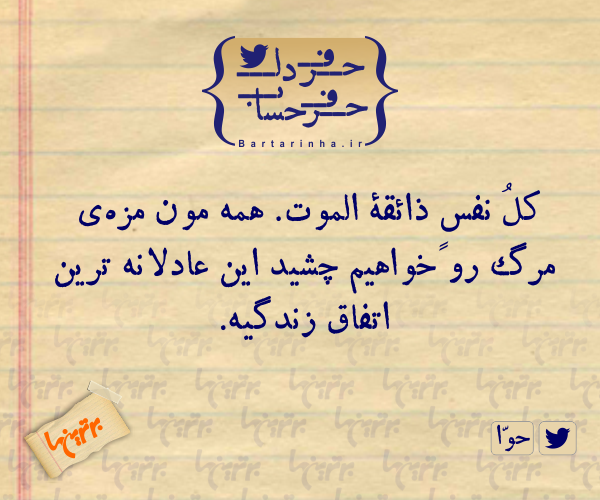 حرف دل
حرف حساب
Bartarinha.ir
کلُ نفسٍ ذائقهٔ الموت. همه مون مزه‌ی
مرگ رو ًخواهیم چشید این عادلانه ترین
اتفاق زندگیه.
برترین‌ها
حوّا